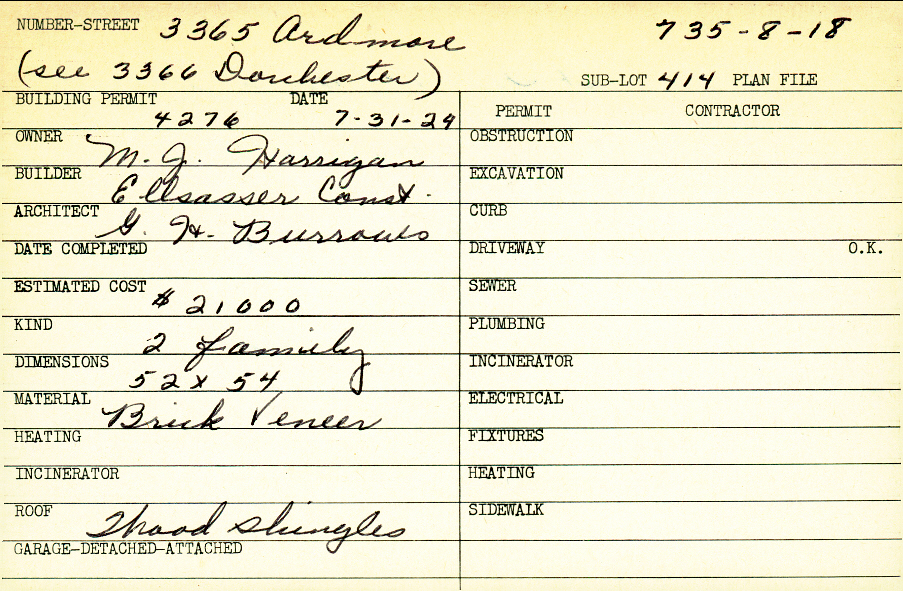 NUMBER-STREET 3365 Ardmore 735-8-18
(see 3366 Dorchester) SUB-LOT 414 PLAN FILE
BUILDING PERMIT DATE PERMIT CONTRACTOR
4276 7-31-29
OWNER M. J. Harrigan OBSTRUCTION
BUILDER Ellsasser Const. EXCAVATION
ARCHITECT G. H. Burrows CURB
DATE COMPLETED DRIVEWAY O.K.
ESTIMATED COST $21000 SEWER
KIND 2 family PLUMBING
DIMENSIONS 52 x 54 INCINERATOR
MATERIAL Brick Veneer ELECTRICAL
HEATING FIXTURES
INCINERATOR HEATING
ROOF Wood shingles SIDEWALK
GARAGE-DETACHED-ATTACHED